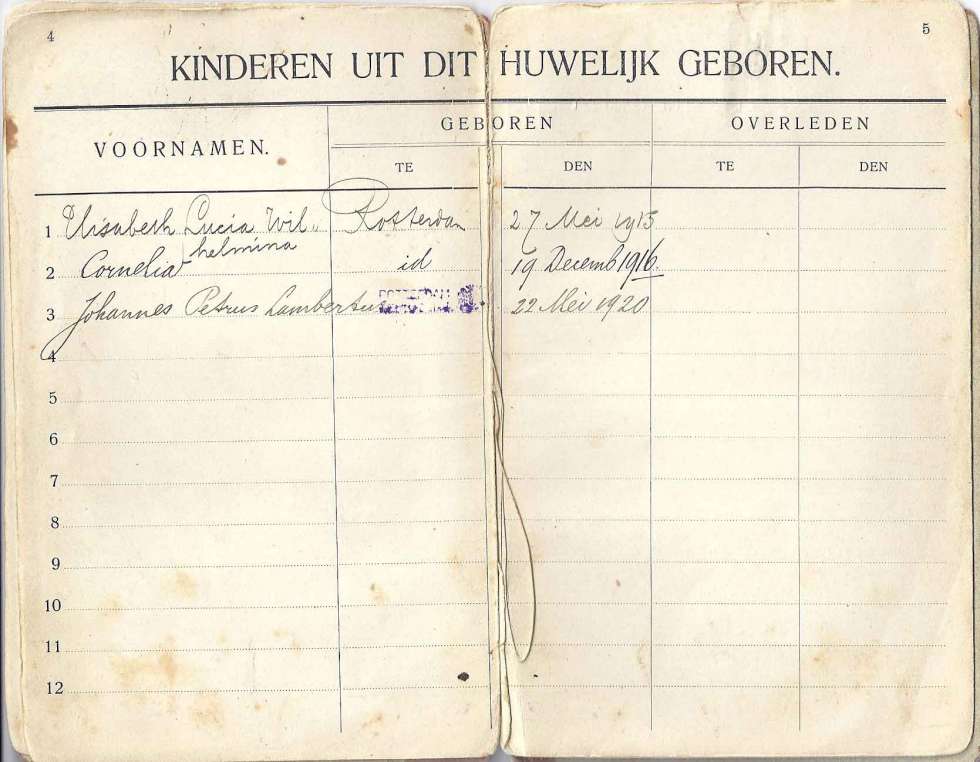 4 5
KINDEREN UIT DIT HUWELIJK GEBOREN.
VOORNAMEN. GEBOREN OVERLEDEN
TE DEN TE DEN
1 Elisabeth Lucia Wil„ Rotterdam 27 Mei 1915
helmina
2 Cornelia id 19 Decemb 1916.
3 Johannes Petrus Lambertus ROTTERDAM 22 Mei 1920
4
5
6
7
8
9
10
11
12